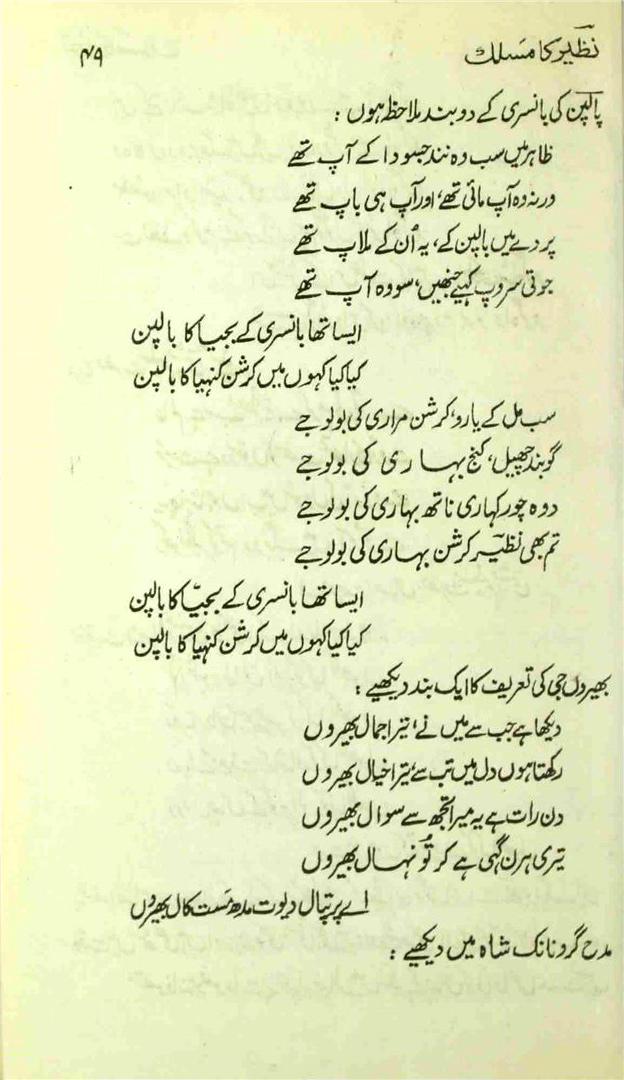 نظیر کا مسلک
۴۹
بالپن کی بانسری کے دو بند ملاحظہ ہوں :
ظاہر میں سب وہ نند جسودا کے آپ تھے
ورنہ وہ آپ مائی تھے، اور آپ ہی باپ تھے
پردے میں بالپن کے، یہ اُن کے ملاپ تھے
جوتی سروپ کہیے جنھیں، سو وہ آپ تھے
ایسا تھا بانسری کے بجیا کا بالپن
کیا کیا کہوں میں کرشن کنہیا کا بالپن
سب مل کے یارو، کرشن مراری کی بولو جے
گوبند چھیل، کنج بہاری کی بولو جے
دوہ چور کہاری ناتھ بہاری کی بولو جے
تم بھی نظیر کرشن بہاری کی بولو جے
ایسا تھا بانسری کے بجیّا کا بالپن
کیا کیا کہوں میں کرشن کنہیا کا بالپن
بھیروں جی کی تعریف کا ایک بند دیکھیے :
دیکھا ہے جب سے میں نے، تیرا جمال بھیروں
رکھتا ہوں دل میں تب سے، تیرا خیال بھیروں
دن رات ہے یہ میرا تجھ سے سوال بھیروں
تیری ہرن گہی ہے کر تُو نہال بھیروں
اے پرتپال دیوت مدھ مست کال بھیروں
مدح گرو نانک شاہ میں دیکھیے :